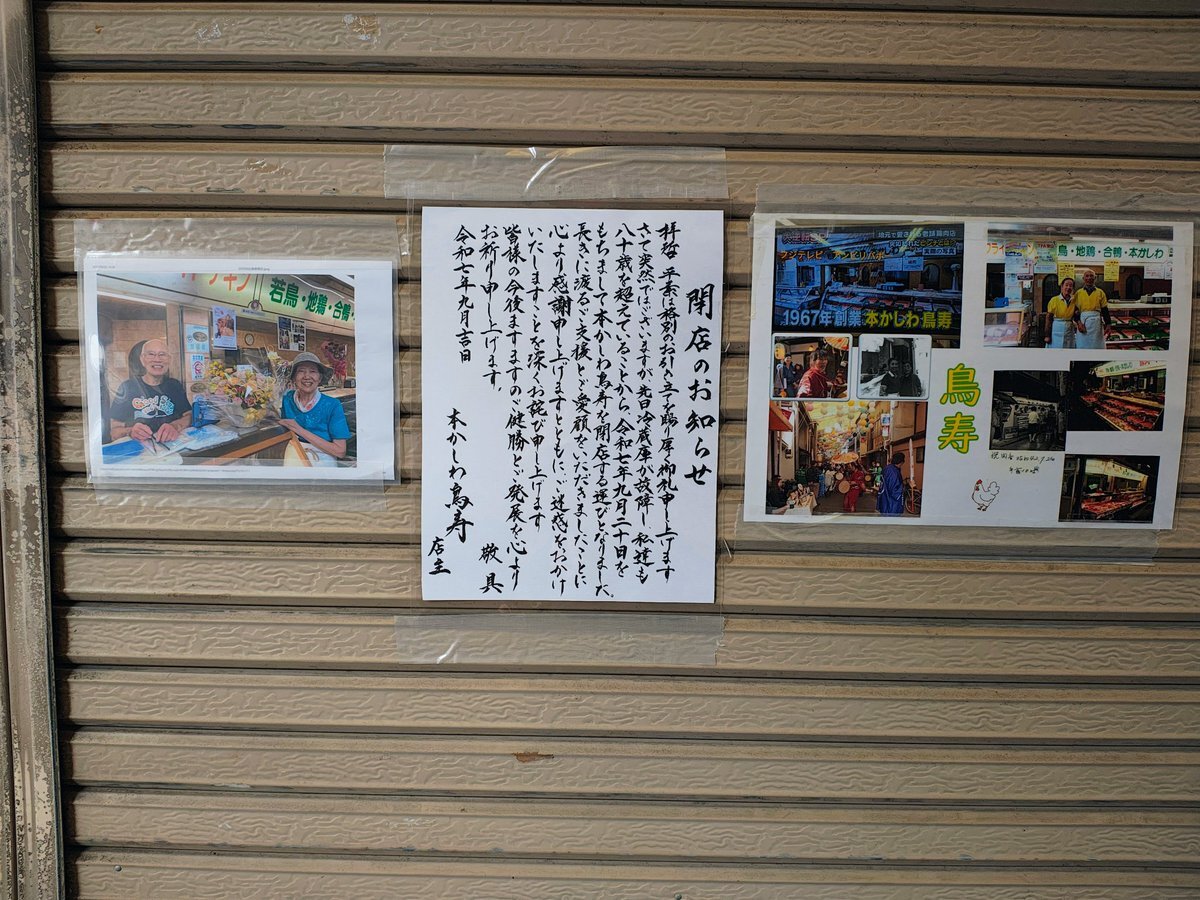 閉店のお知らせ
拝啓 平素は格別のお引き立てを賜り厚く御礼申し上げます
さて突然ではございますが、先日冷蔵庫が故障し、私達も
八十歳を超えていることから、令和七年九月二十日を
もちまして本かしわ鳥寿を閉店する運びとなりました。
長きに渡るご支援とご愛顧をいただきましたことに
心より感謝申し上げますとともに、ご迷惑をおかけ
いたしますことを深くお詫び申し上げます
皆様の今後ますますのご健勝とご発展を心より
お祈り申し上げます。
敬具
令和七年九月吉日
本かしわ鳥寿
店主
若鳥・地鶏・合鴨
地元で愛される老舗鶏肉店
フジテレビ アンビリバボー
1967年創業 本かしわ鳥寿
鳥・地鶏・合鴨・本かしわ
鳥寿